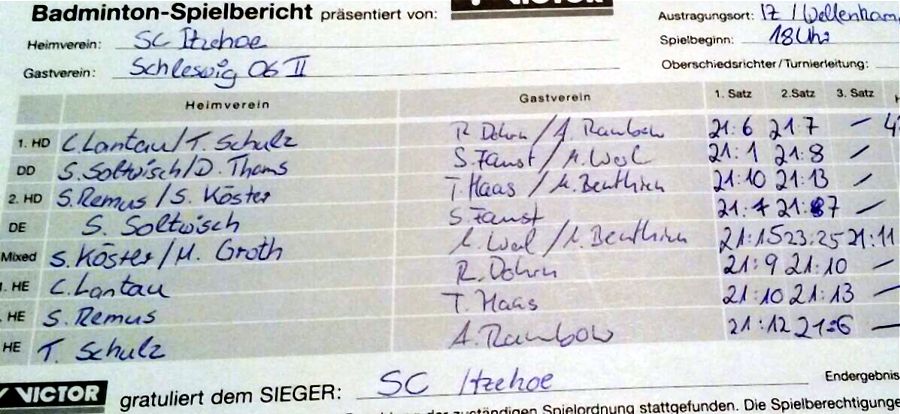 Badminton-Spielbericht präsentiert von: VICTOR
Austragungsort: IZ / Wellenkam
Heimverein: SC Itzehoe
Spielbeginn: 18 Uhr
Gastverein: Schleswig 06 II
Oberschiedsrichter/Turnierleitung:
Heimverein Gastverein 1. Satz 2. Satz 3. Satz
1. HD C. Lantau / T. Schulz R. Dohrn / A. Rambow 21:6 21:7 –
DD S. Soltwisch / D. Thams S. Faust / 21:1 21:8 –
2. HD S. Remus / S. Köster T. Haas / M. Benthien 21:10 21:13 –
DE S. Soltwisch S. Faust 21:7
Mixed S. Köster / M. Groth / M. Benthien 21:15 23:25 21:11
. HE C. Lantau R. Dohrn 21:9 21:10 –
. HE S. Remus T. Haas 21:10 21:13 –
HE T. Schulz A. Rambow 21:12 21:6 –
VICTOR gratuliert dem SIEGER: SC Itzehoe
Endergebnis
zuständigen Spielordnung stattgefunden. Die Spielberechtigunge